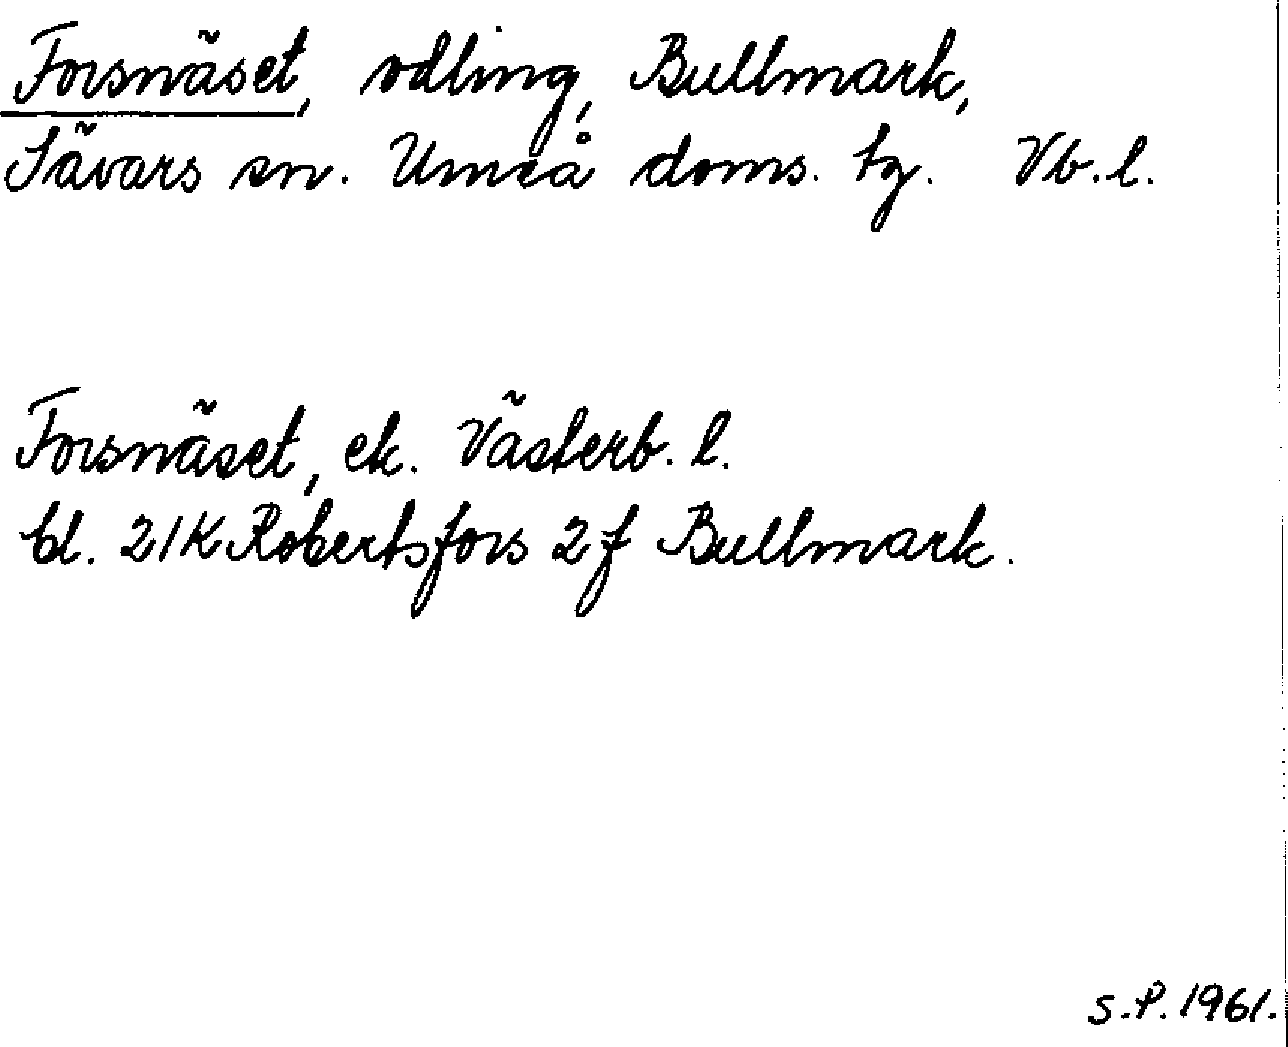 Forsnäset, odling, Bullmark,
Sävars sn. Umeå doms. tg. Vb. l.
Forsnäset, ek. Västerb. l.
bl. 21K Robertsfors 2f Bullmark.
S.P. 1961.